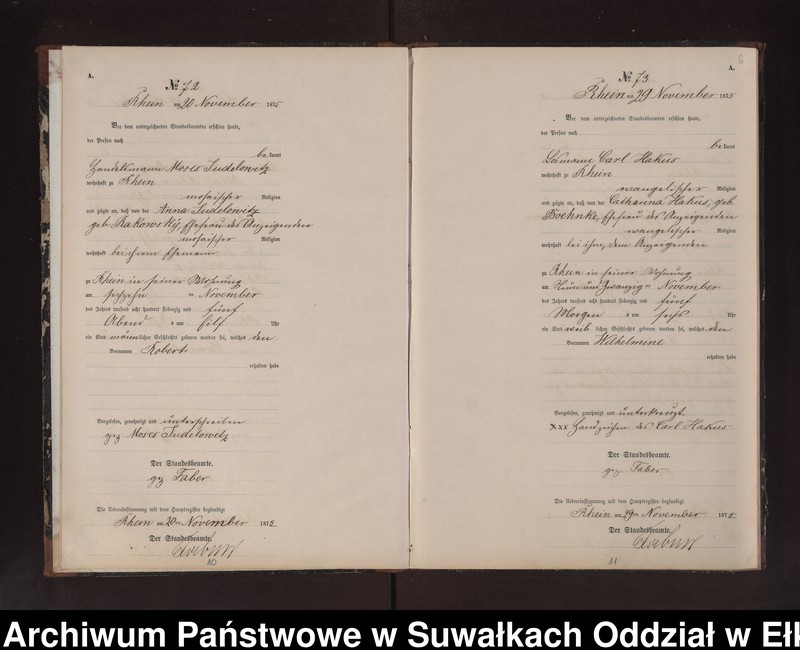 A.
№ 72
Rhein am 20 November 1875
Vor dem unterzeichneten Standesbeamten erschien heute,
der Person nach
be kannt
Handelsmann Moses Judelowitz
wohnhaft zu Rhein
mosaischer Religion
und zeigte an, daß von der Anna Judelowitz
geb. Rakowsky, Ehefrau des Anzeigenden
mosaischer Religion
wohnhaft bei ihrem Ehemann
zu Rhein in seiner Wohnung
am sechzehn ten November
des Jahres tausend acht hundert siebenzig und fünf
Abend s um elf Uhr
ein Kind männlichen Geschlechts geboren worden sei, welches den
Vornamen Robert
erhalten habe
Vorgelesen, genehmigt und unterschrieben
gez. Moses Judelowitz
Der Standesbeamte.
gez. Faber
Die Uebereinstimmung mit dem Hauptregister beglaubigt
Rhein am 20ten November 1875
Der Standesbeamte.
10
6
A.
№ 73
Rhein am 29 November 1875
Vor dem unterzeichneten Standesbeamten erschien heute,
der Person nach
be kannt
Losmann Carl Hakus
wohnhaft zu Rhein
evangelischer Religion
und zeigte an, daß von der Catharina Hakus, geb.
Boehnke, Ehefrau des Anzeigenden
evangelischer Religion
wohnhaft bei ihm, dem Anzeigenden
zu Rhein in seiner Wohnung
am Neun und Zwanzig ten November
des Jahres tausend acht hundert siebenzig und fünf
Morgen s um sechs Uhr
ein Kind weiblichen Geschlechts geboren worden sei, welches den
Vornamen Wilhelmine
erhalten habe
Vorgelesen, genehmigt und unterkreuzt.
xxx Handzeichen des Carl Hakus
Der Standesbeamte.
gez. Faber
Die Uebereinstimmung mit dem Hauptregister beglaubigt
Rhein am 29ten November 1875
Der Standesbeamte.
11
Archiwum Państwowe w Suwałkach Oddział w Ełk